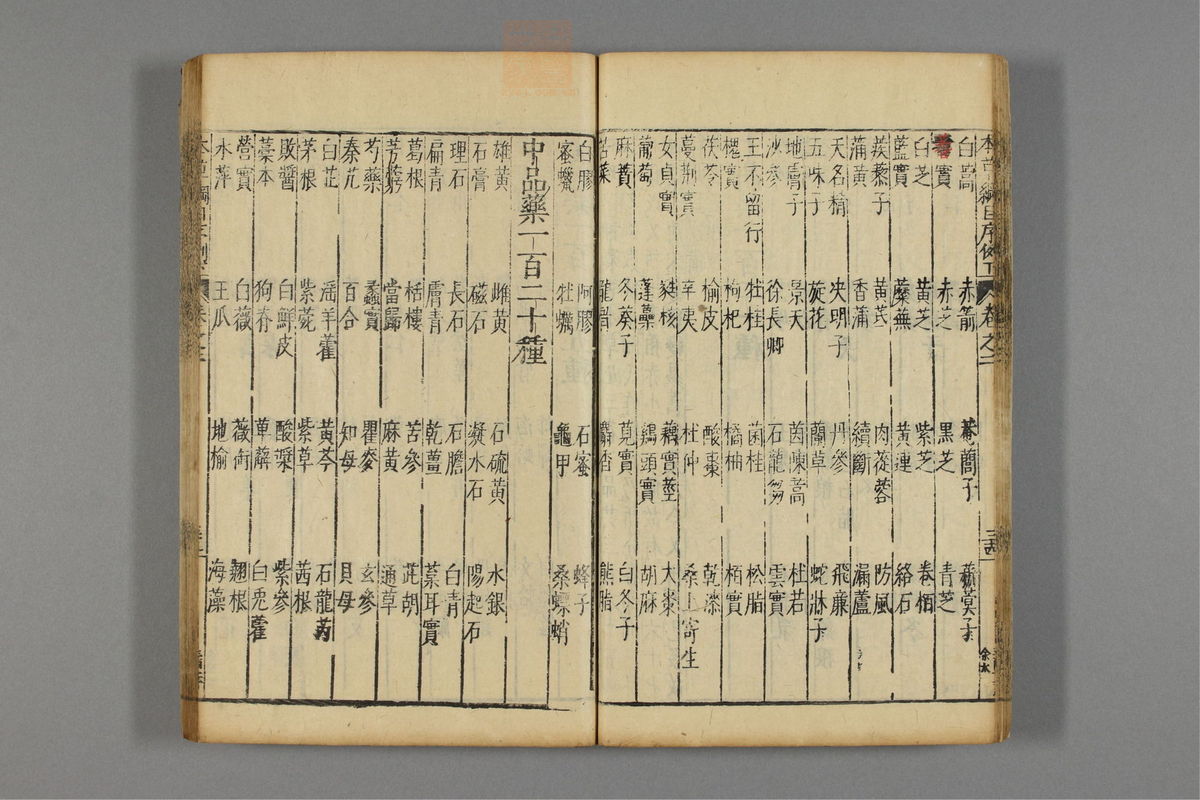 本草綱目序例下 卷之二
白蒿 赤箭 菴䕡子 薪蓂子
蓍實 赤芝 黑芝 青芝
白芝 黃芝 紫芝 卷栢
藍實 蘪蕪 黃連 絡石
蒺藜子 黃芪 肉蓯蓉 防風
蒲黃 香蒲 續斷 漏蘆
天名精 决明子 丹參 飛廉
五味子 旋花 蘭草 蛇牀子
地膚子 景天 茵蔯蒿 杜若
沙參 徐長卿 石龍芻 雲實
王不留行 牡桂 菌桂 松脂
槐實 枸杞 橘柚 栢實
茯苓 榆皮 酸棗 乾漆
蔓荊實 辛夷 杜仲 桑上寄生
女貞實 蕤核 藕實莖 大棗
葡萄 蓬蘽 鷄頭實 胡麻
麻蕡 冬葵子 莧實 白冬子
苦菜 龍骨 麝香 熊脂
白膠 阿膠 石蜜 蜂子
蜜蠟 牡蠣 龜甲 桑螵蛸
中品藥一百二十種
雄黃 雌黃 石硫黃 水銀
石膏 磁石 凝水石 陽起石
理石 長石 石膽 白青
扁青 膚青 乾薑 菜耳實
葛根 栝樓 苦參 茈胡
芎藭 當歸 麻黃 通草
芍藥 蠡實 瞿麥 玄參
秦艽 百合 知母 貝母
白芷 淫羊藿 黃芩 石龍芮
茅根 紫菀 紫草 茜根
敗醬 白鮮皮 酸漿 紫參
藁本 狗脊 萆薢 白兎藿
營實 白薇 薇銜 翹根
水萍 王瓜 地榆 海藻